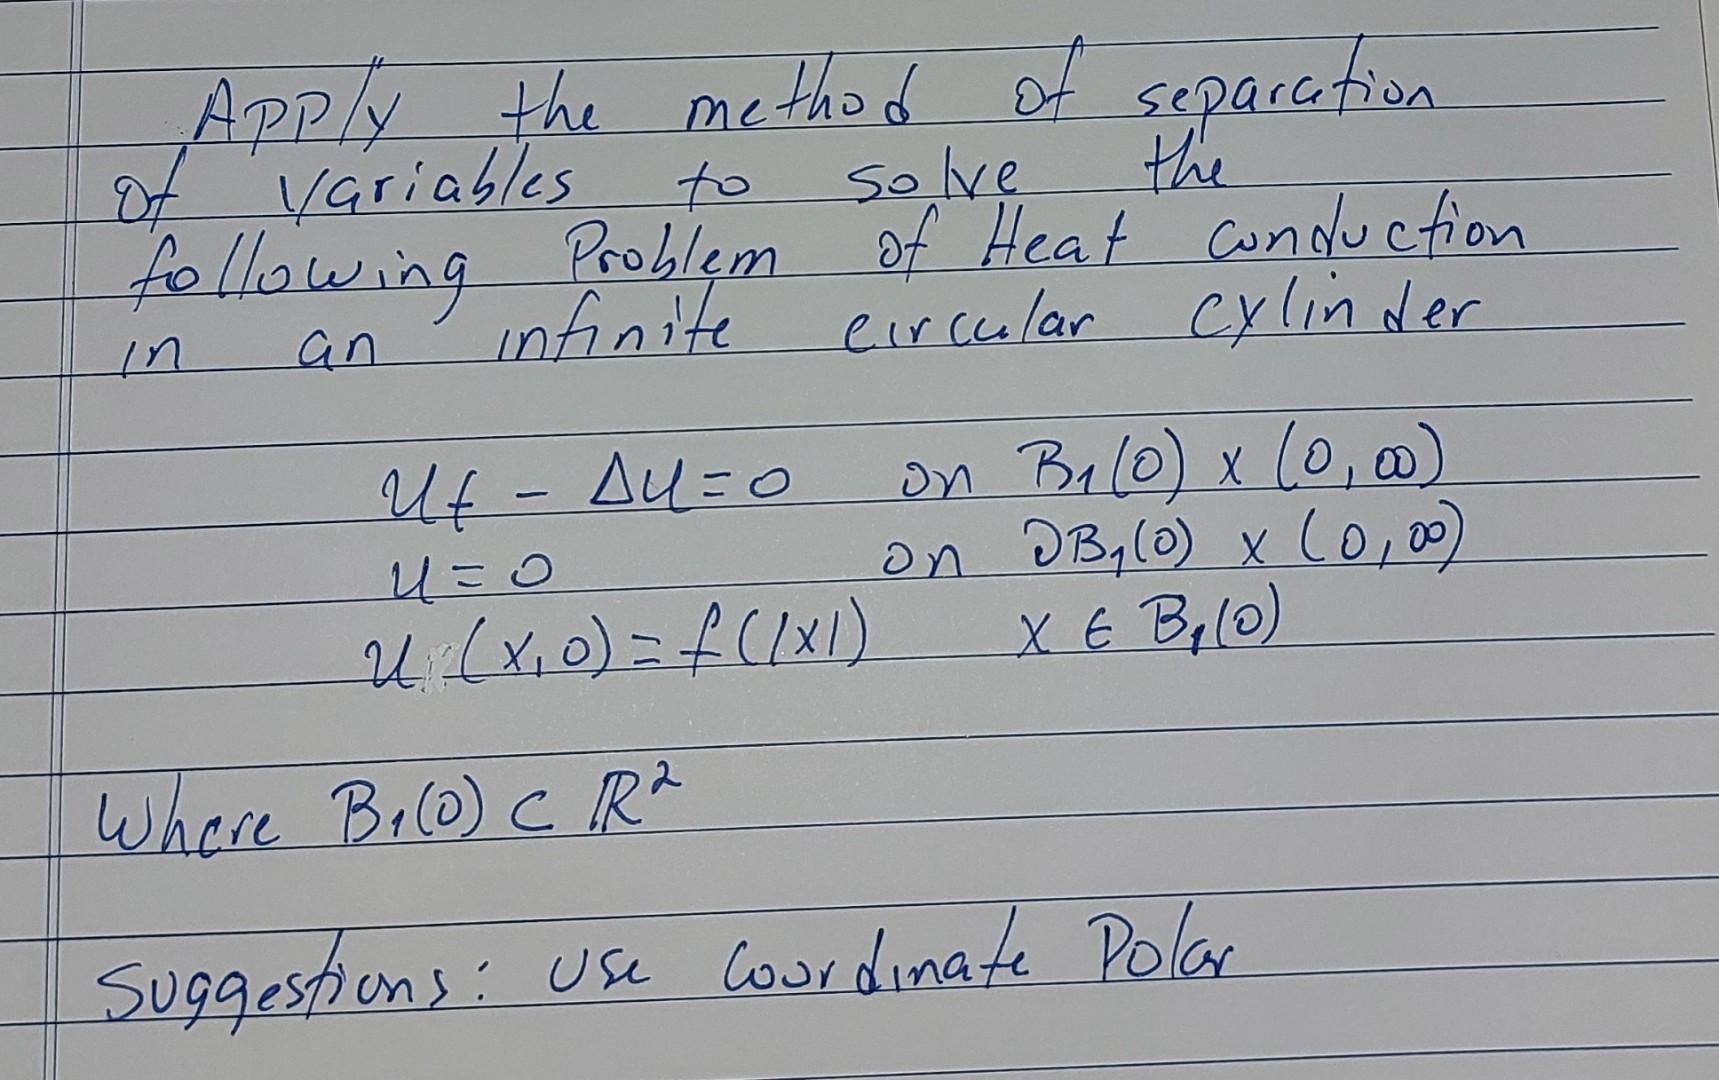 Apply the method of separation
of variables to solve the
following Problem of Heat conduction
in an infinite circular cylinder
ut - Δu = 0 on B₁(0) x (0, ∞)
u = 0 on ∂B₁(0) x (0, ∞)
u (x, 0) = f(|x|) x ∈ B₁(0)
Where B₁(0) ⊂ ℝ²
Suggestions: Use Coordinate Polar